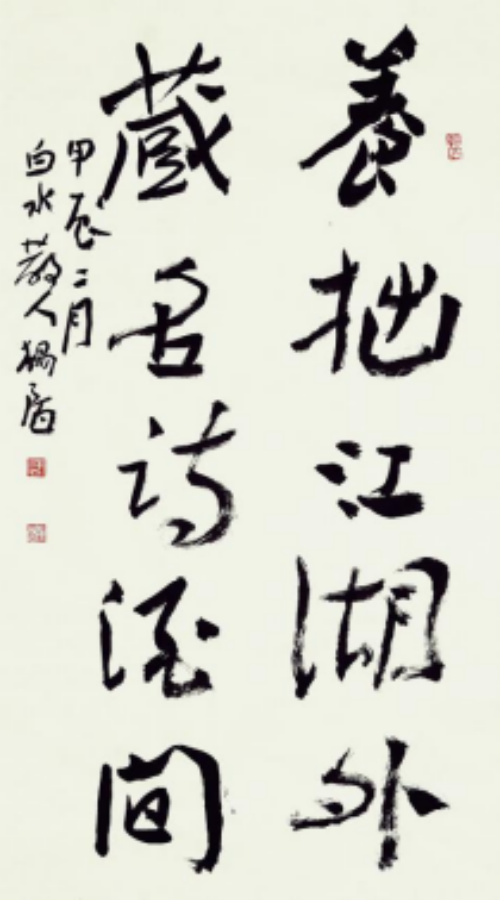 養拙江湖外
藏名詩酒間
甲辰二月
白水散人楊眉